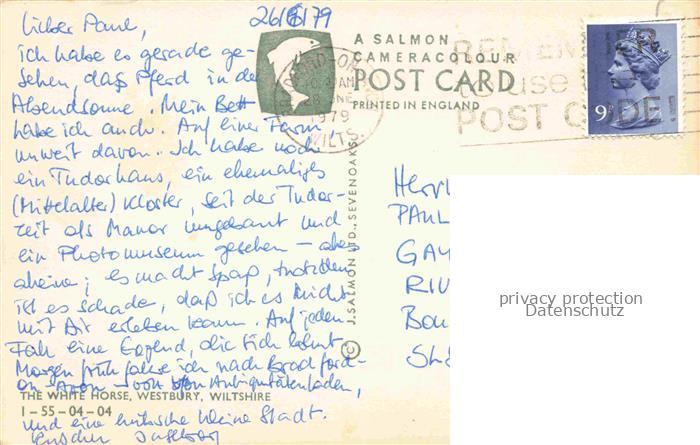 26/6/79
Lieber Paul,
ich habe es gerade ge-
sehen, das Pferd in der
Abendsonne. Mein Bett
habe ich auch. Auf einer Farm,
unweit davon. Ich habe noch
ein Tudorhaus, ein ehemaliges
(Mittelalter) Kloster, seit der Tudor-
zeit als Manor umgebaut und
ein Photomuseum gesehen – aber
alleine; es macht Spaß, trotzdem
ist es schade, daß ich es nicht
mit Dir erleben kann. Auf jeden
Fall eine Gegend, die sich lohnt.
Morgen früh fahre ich nach Bradford-
on-Avon – von Antiquitätenläden,
und eine hübsche kleine Stadt.
THE WHITE HORSE, WESTBURY, WILTSHIRE
1-55-04-04
A SALMON
CAMERACOLOUR
POST CARD
PRINTED IN ENGLAND
© J. SALMON LTD., SEVENOAKS.
1979
WILTS.
REMEMBER
to use
POST CODE!
9P
PAUL
GAY
RIV
BOU
privacy protection
Datenschutz